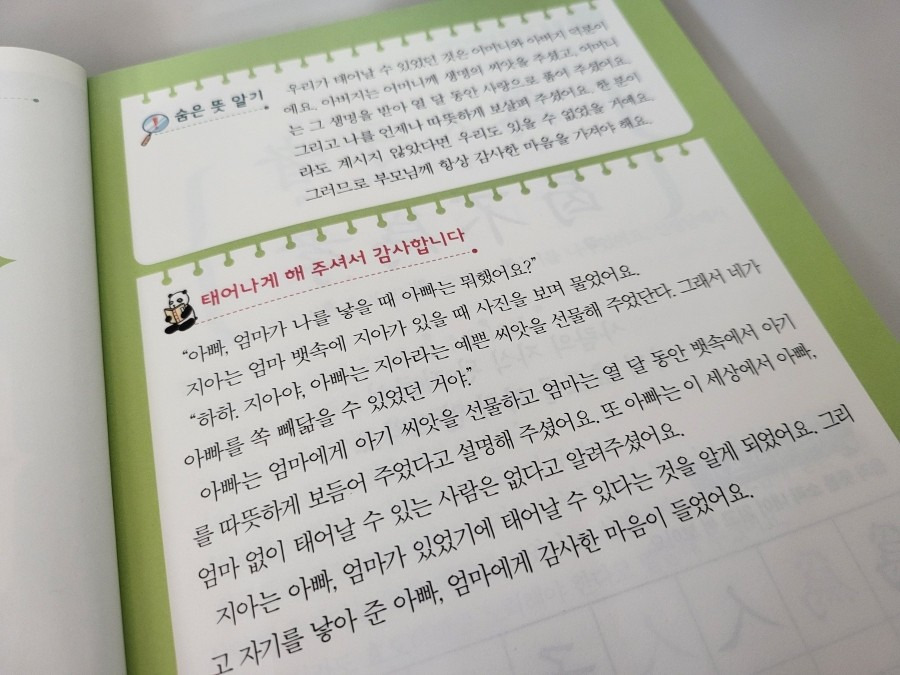 숨은 뜻 알기
우리가 태어날 수 있었던 것은 어머니와 아버지 덕분이
에요. 아버지는 어머니께 생명의 씨앗을 주셨고, 어머니
는 그 생명을 받아 열 달 동안 사랑으로 품어 주셨어요.
그리고 나를 언제나 따뜻하게 보살펴 주셨어요. 한 분이
라도 계시지 않았다면 우리도 있을 수 없었을 거예요.
그러므로 부모님께 항상 감사한 마음을 가져야 해요.
태어나게 해 주셔서 감사합니다
“아빠, 엄마가 나를 낳을 때 아빠는 뭐했어요?”
지아는 엄마 뱃속에 지아가 있을 때 사진을 보며 물었어요.
“하하. 지아야, 아빠는 지아라는 예쁜 씨앗을 선물해 주었단다. 그래서 네가
아빠를 쏙 빼닮을 수 있었던 거야.”
아빠는 엄마에게 아기 씨앗을 선물하고 엄마는 열 달 동안 뱃속에서 아기
를 따뜻하게 보듬어 주었다고 설명해 주셨어요. 또 아빠는 이 세상에서 아빠,
엄마 없이 태어날 수 있는 사람은 없다고 알려주셨어요.
지아는 아빠, 엄마가 있었기에 태어날 수 있다는 것을 알게 되었어요. 그리
고 자기를 낳아 준 아빠, 엄마에게 감사한 마음이 들었어요.